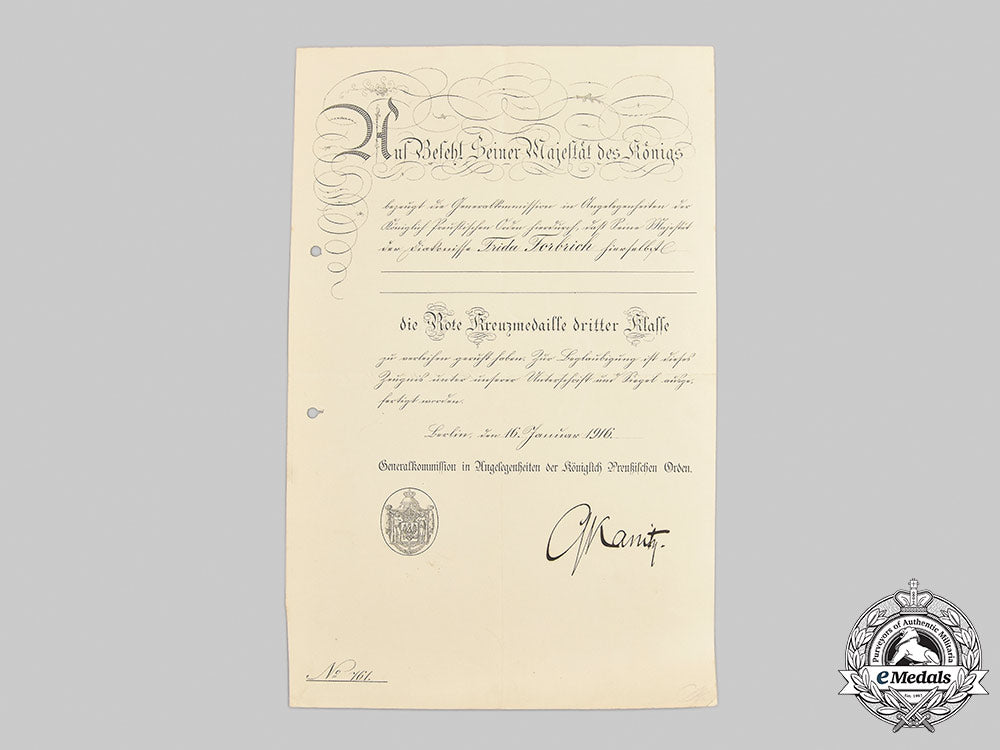 Auf Befehl Seiner Majestät des Königs
bezeugt die Generalkommission in Angelegenheiten der
Königlich Preußischen Orden hierdurch, daß Seine Majestät
der Diakonisse Frida Forbrich hierselbst
die Rote Kreuzmedaille dritter Klasse
zu verleihen geruht haben. Zur Beglaubigung ist dieses
Zeugnis unter unserer Unterschrift und Siegel ausge-
fertigt worden.
Berlin, den 16. Januar 1916.
Generalkommission in Angelegenheiten der Königlich Preußischen Orden.
Kanitz.
No 761.
Purveyors of Authentic Militaria
eMedals